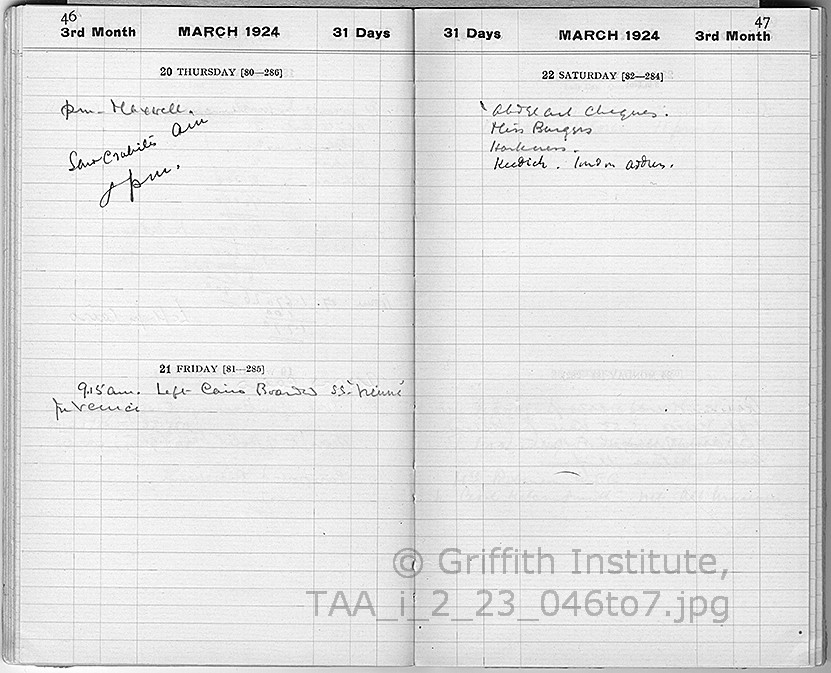 46
3rd Month MARCH 1924 31 Days
20 THURSDAY [80—286]
pm - Maxwell.
Saw Crabites am
pm.
21 FRIDAY [81—285]
9.15 am. Left Cairo Boarded S.S.
for Venice
47
31 Days MARCH 1924 3rd Month
22 SATURDAY [82—284]
Cheques.
Miss Burgess
Harkness.
Keedick. London address.
© Griffith Institute,
TAA_i_2_23_046to7.jpg